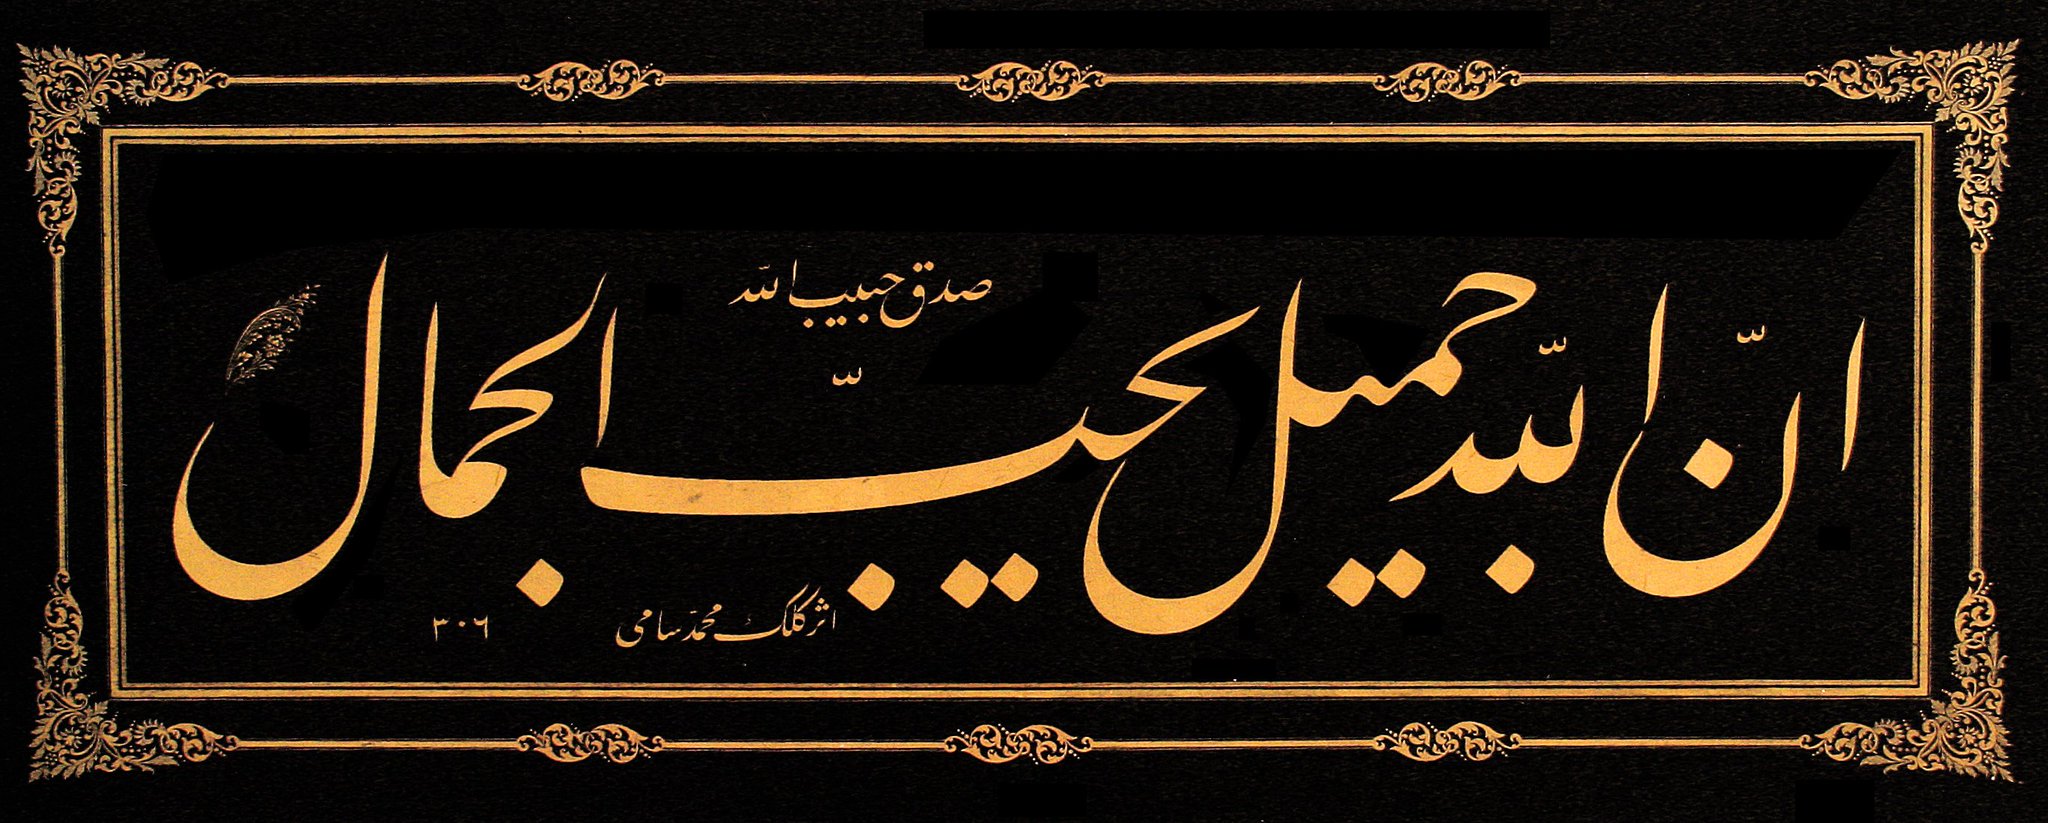 صدق حبيب الله
انّ الله جميل يحبّ الجمال
اثر كلك محمد سامی
٣٠٦